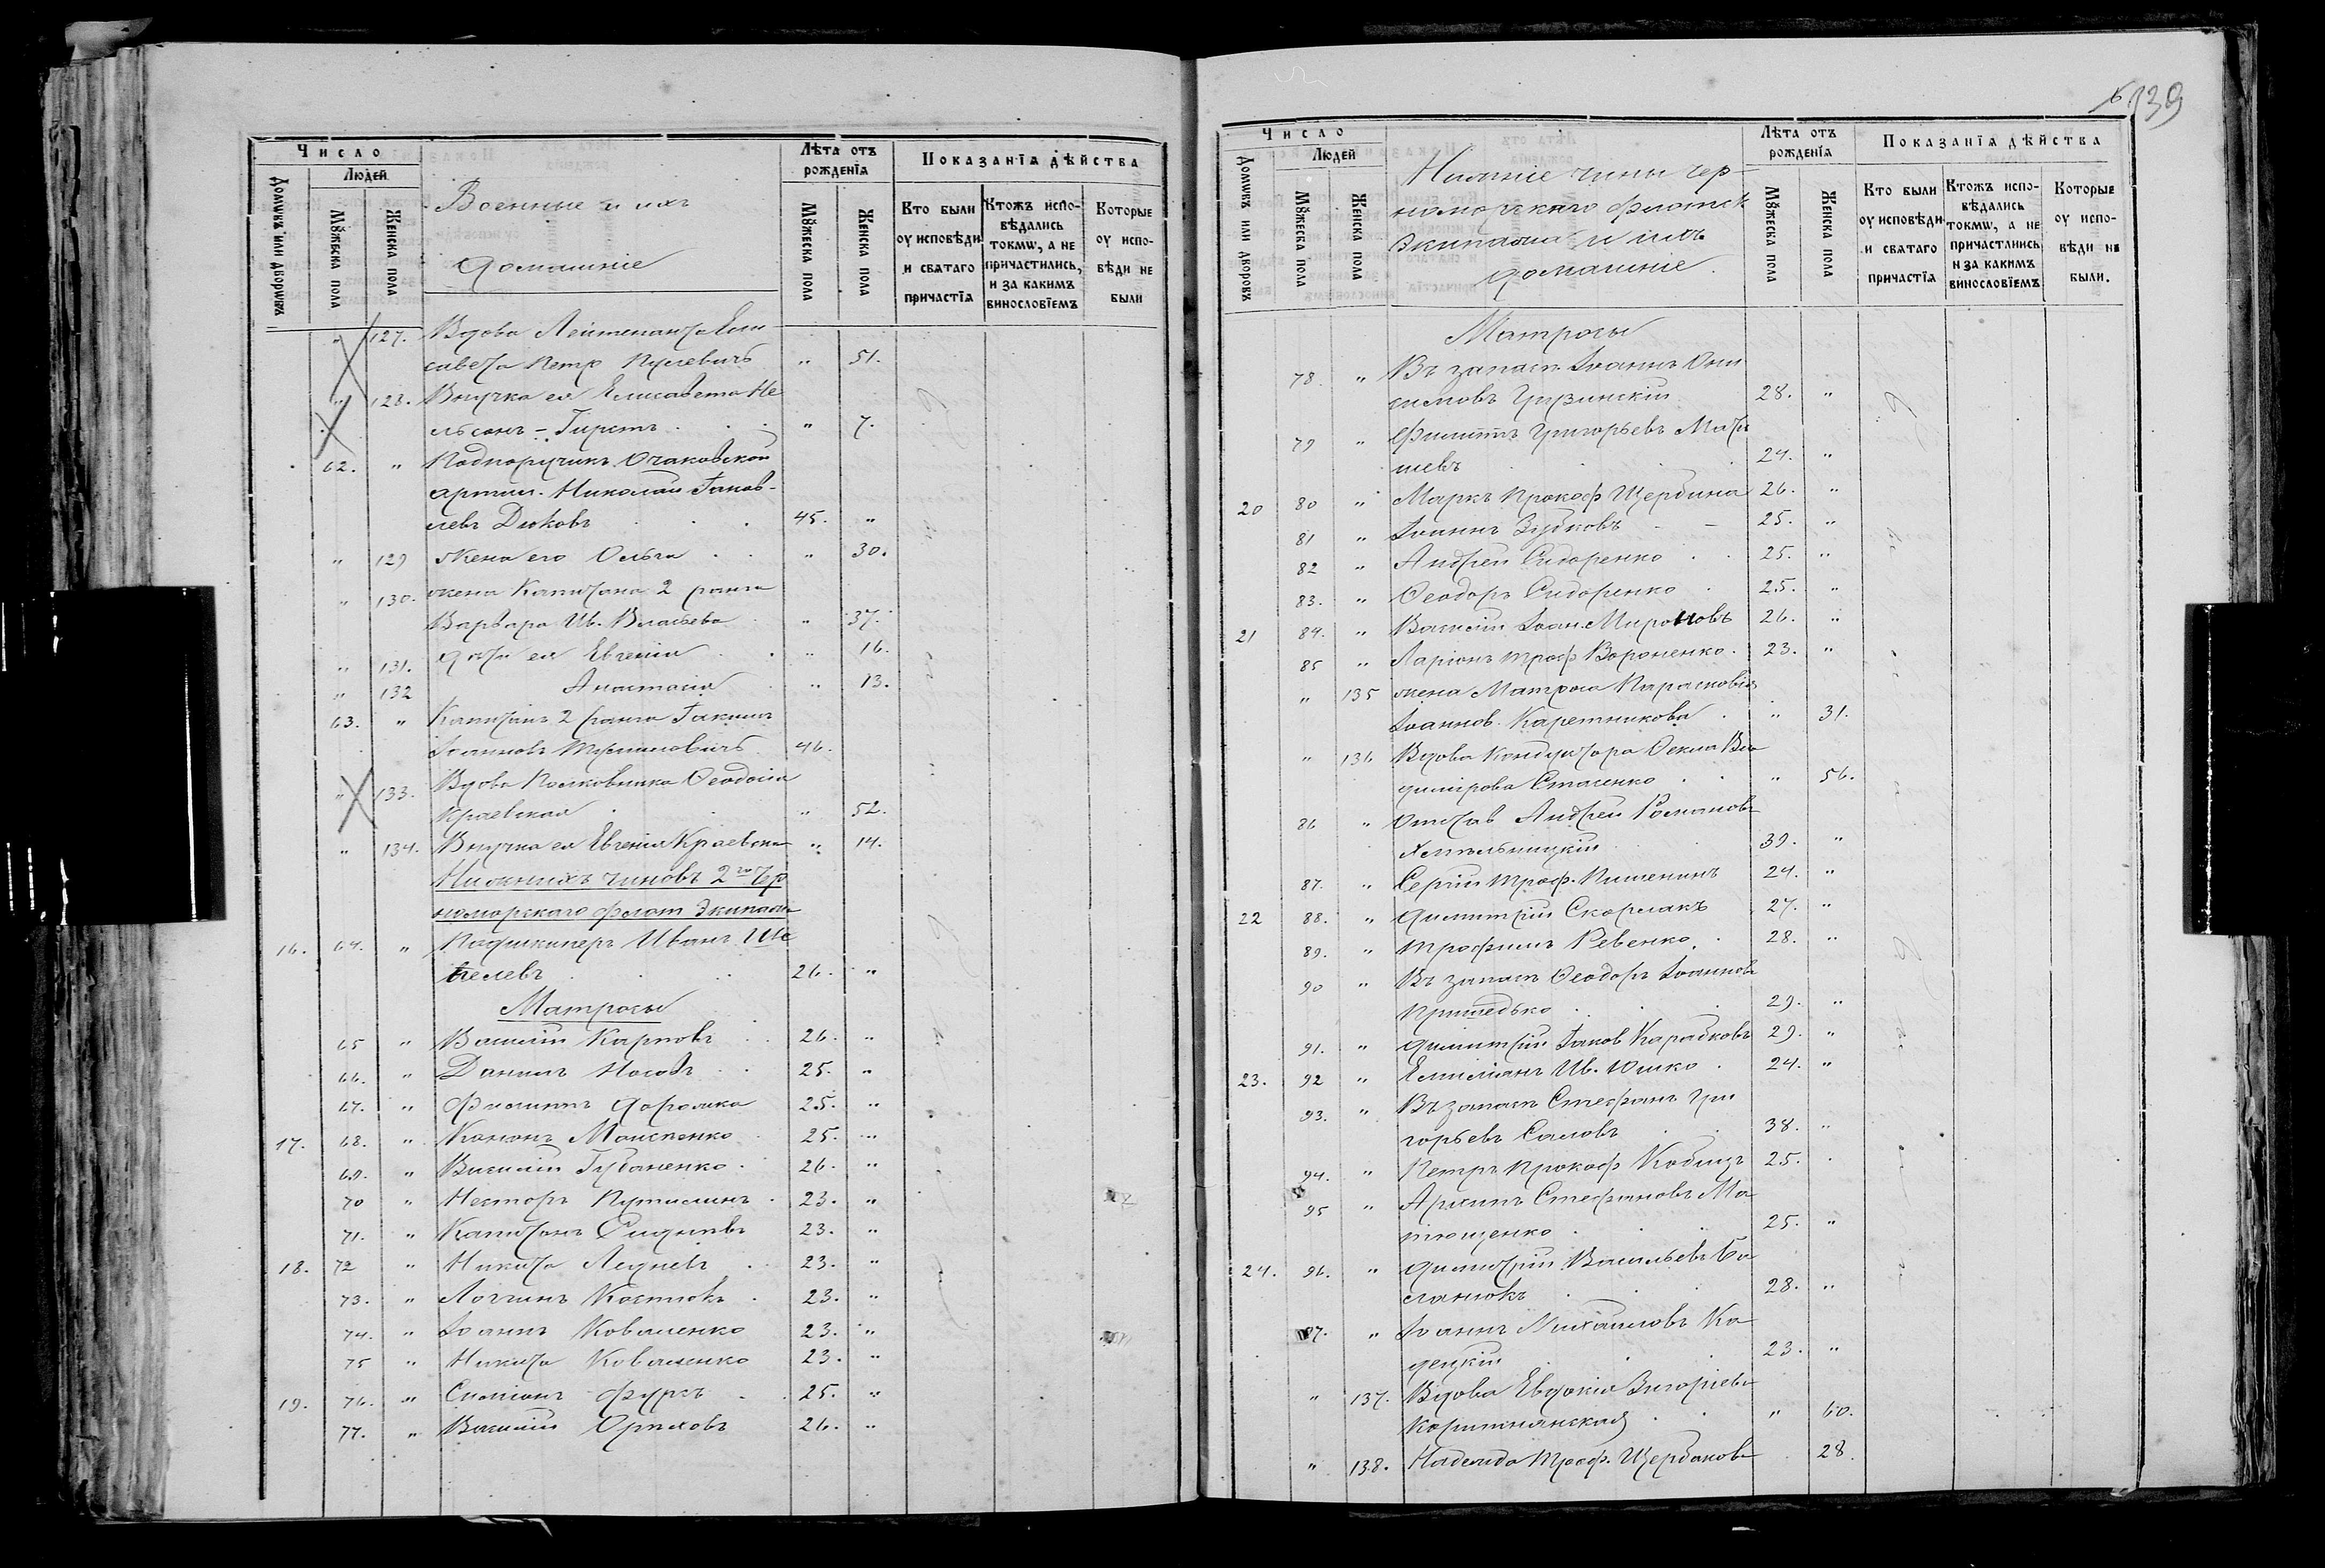 Число
Людей
Домωвъ или дворωвъ
Мꙋжеска пола
Женска пола
Военные и ихъ
домашніе
Лѣта отъ
рожденїя
Мꙋжеска пола
Женска пола
Показанїя дѣйства
Кто были
оу исповѣди
и святаго
причастїя
Ктожъ испо-
вѣдались
токмω, а не
причастились,
и за какимъ
винословїемъ
Которые
оу испо-
вѣди не
были
" 127. Вдова Лейтенанта Ели
савета Петр " 51.
" 128. Внучка ея Елисавета Не
льсонъ-Гирстъ " 7.
62. " Подпоручикъ Очаковской
артил. Николай Іаков-
левъ Дюковъ 45. "
" 129 Жена его Ольга " 30.
" 130. жена Капитана 2 ранга
Варвара Ив. Власьева " 37.
" 131. дочь ея Евгенія " 16.
" 132 Анастасія " 13.
63. " Капитанъ 2 ранга Іакимъ
Іоанновъ 46.
" 133. Вдова Полковника Ѳеодосія
Краевская " 52.
" 134. Внучка ея Евгенія Краевская " 14.
Нижнихъ чиновъ 2го Чер
номорскаго флот Экипажа
16. 64. " Подшкиперъ Иванъ Ше
пелевъ 26. "
Матросы
65 " Василій Карповъ 26. "
66. " Даніилъ Носовъ 25. "
67. " Филиппъ 25. "
17. 68. " Кононъ Моисеенко 25. "
69. " Василій Губаненко 26. "
70 " Несторъ Путилинъ 23. "
71. " Капитонъ 23. "
18. 72 " Никита Леднёвъ 23. "
73. " Логгинъ Костюкъ 23. "
74. " Іоаннъ Коваленко 23. "
75 " Никита Коваленко 23. "
19. 76. " Симеонъ Фурсъ 25. "
77. " Василій Орѣховъ 26. "
139
Число
Людей
Домωвъ или дворовъ
Мꙋжеска пола
Женска пола
Нижніе чины Чер-
номорскаго флотск
Экипажа и ихъ
домашніе.
Лѣта отъ
рожденїя
Мꙋжеска пола
Женска пола
Показанїя дѣйства
Кто были
оу исповѣди
и святаго
причастїя
Ктожъ испо-
вѣдались
токмω, а не
причастлиись
и за какимъ
винословїемъ
Которые
оу испо-
вѣди не
были.
Матросы
78. " Въ запасѣ Іоаннъ Они
симовъ Грузинскій 28. "
79 " Филиппъ Григорьевъ
24. "
20 80 " Маркъ Прокоф Щербина 26. "
81 " Іоаннъ Зубковъ 25. "
82 " Андрей Сидоренко 25. "
83. " Ѳеодоръ Сидоренко 25. "
21 84. " Василій Іоан. Мироновъ 26. "
85 " Ларіонъ Троф Вороненко 23. "
" 135 жена Матроса Парасковія
Іоаннов. Каретникова " 31.
" 136 Вдова Кондуктора Ѳекла Вла
димірова Стасенко " 56.
86 " Отстав Андрей Романовъ
Хмѣльницкій 39. "
87. " Сергій Троф. Пишенинъ 24. "
22 88. " Димитрій Скорлакъ 27. "
89. " Трофимъ Ревенко 28. "
90 " Въ запасѣ Ѳеодоръ Іоанновъ
Пришедько 29. "
91. " Димитрій Іаков Карабковъ 29. "
23. 92 " Емиліанъ Ив. Юшко 24. "
93. " Въ запасѣ Стефанъ Гри
горьевъ Саловъ 38. "
94. " Петръ Прокоф Кобецъ 25.
95 " Архипъ Стефановъ Ма
тющенко 25. "
24. 96. " Димитрій Васильевъ Ба
ланюкъ 28. "
97. " Іоаннъ Михайловъ Ка
децкій 23. "
" 137. Вдова Евдокія Григоріева
60.
" 138. Надежда Троф. Щербакова 28.